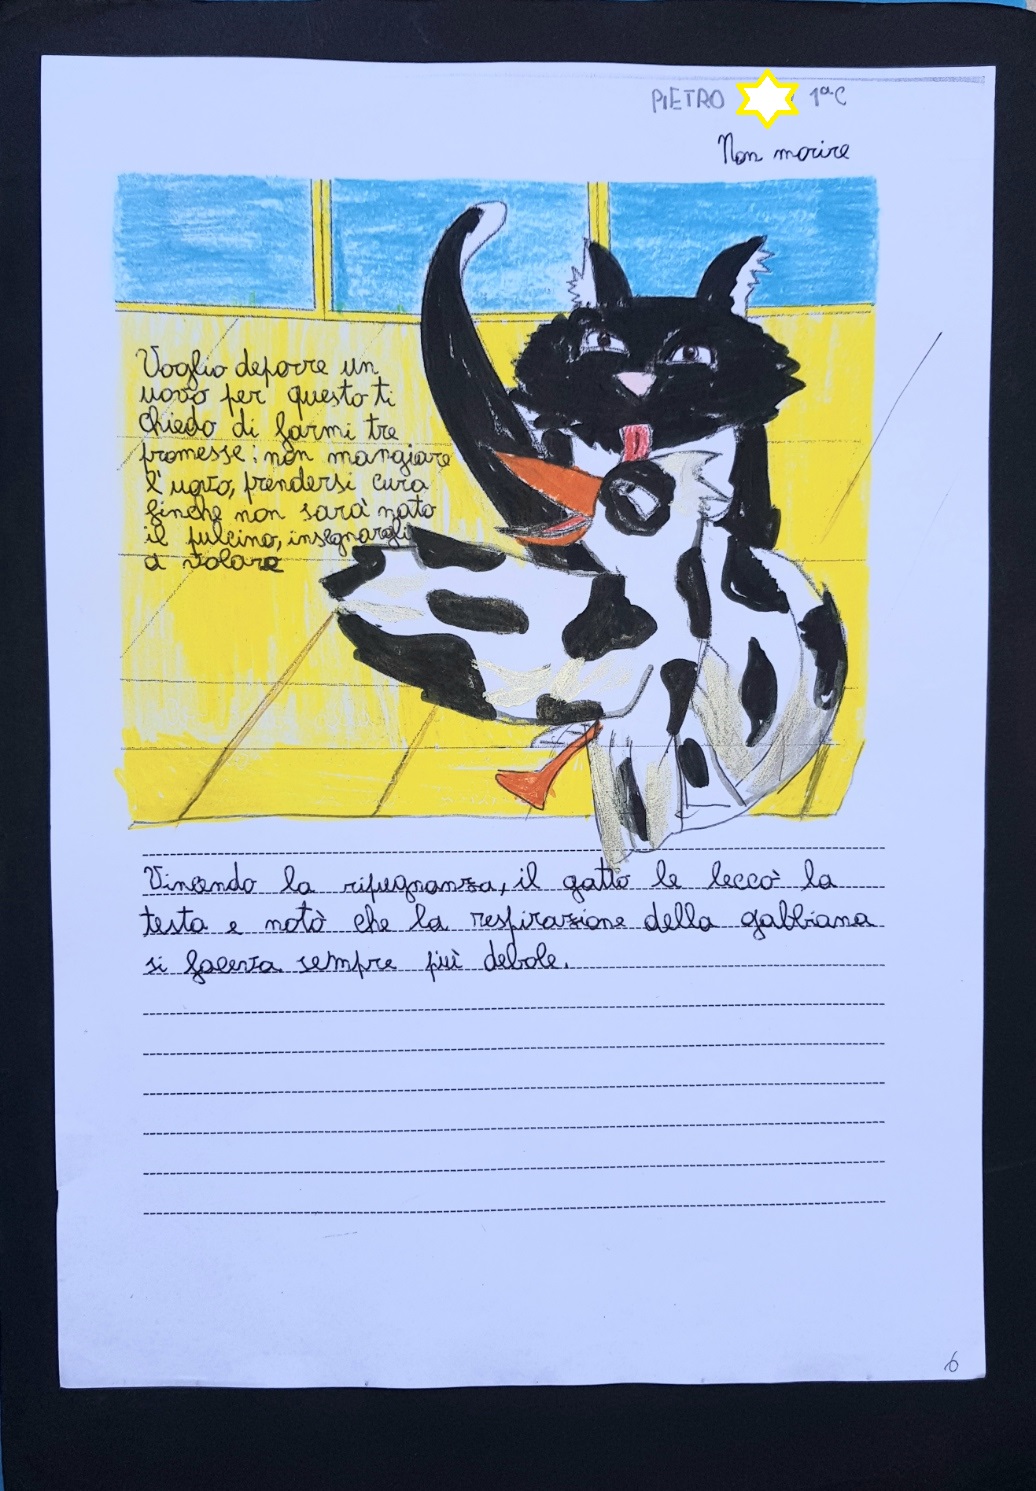 PIETRO 1ªC
Non morire
Voglio deporre un
uovo per questo ti
chiedo di farmi tre
promesse: non mangiare
l'uovo, prendersi cura
finche non sarà nato
il pulcino, insegnargli
a volare
Vincendo la ripugnanza, il gatto le leccò la
testa e notò che la respirazione della gabbiana
si faceva sempre più debole.
6